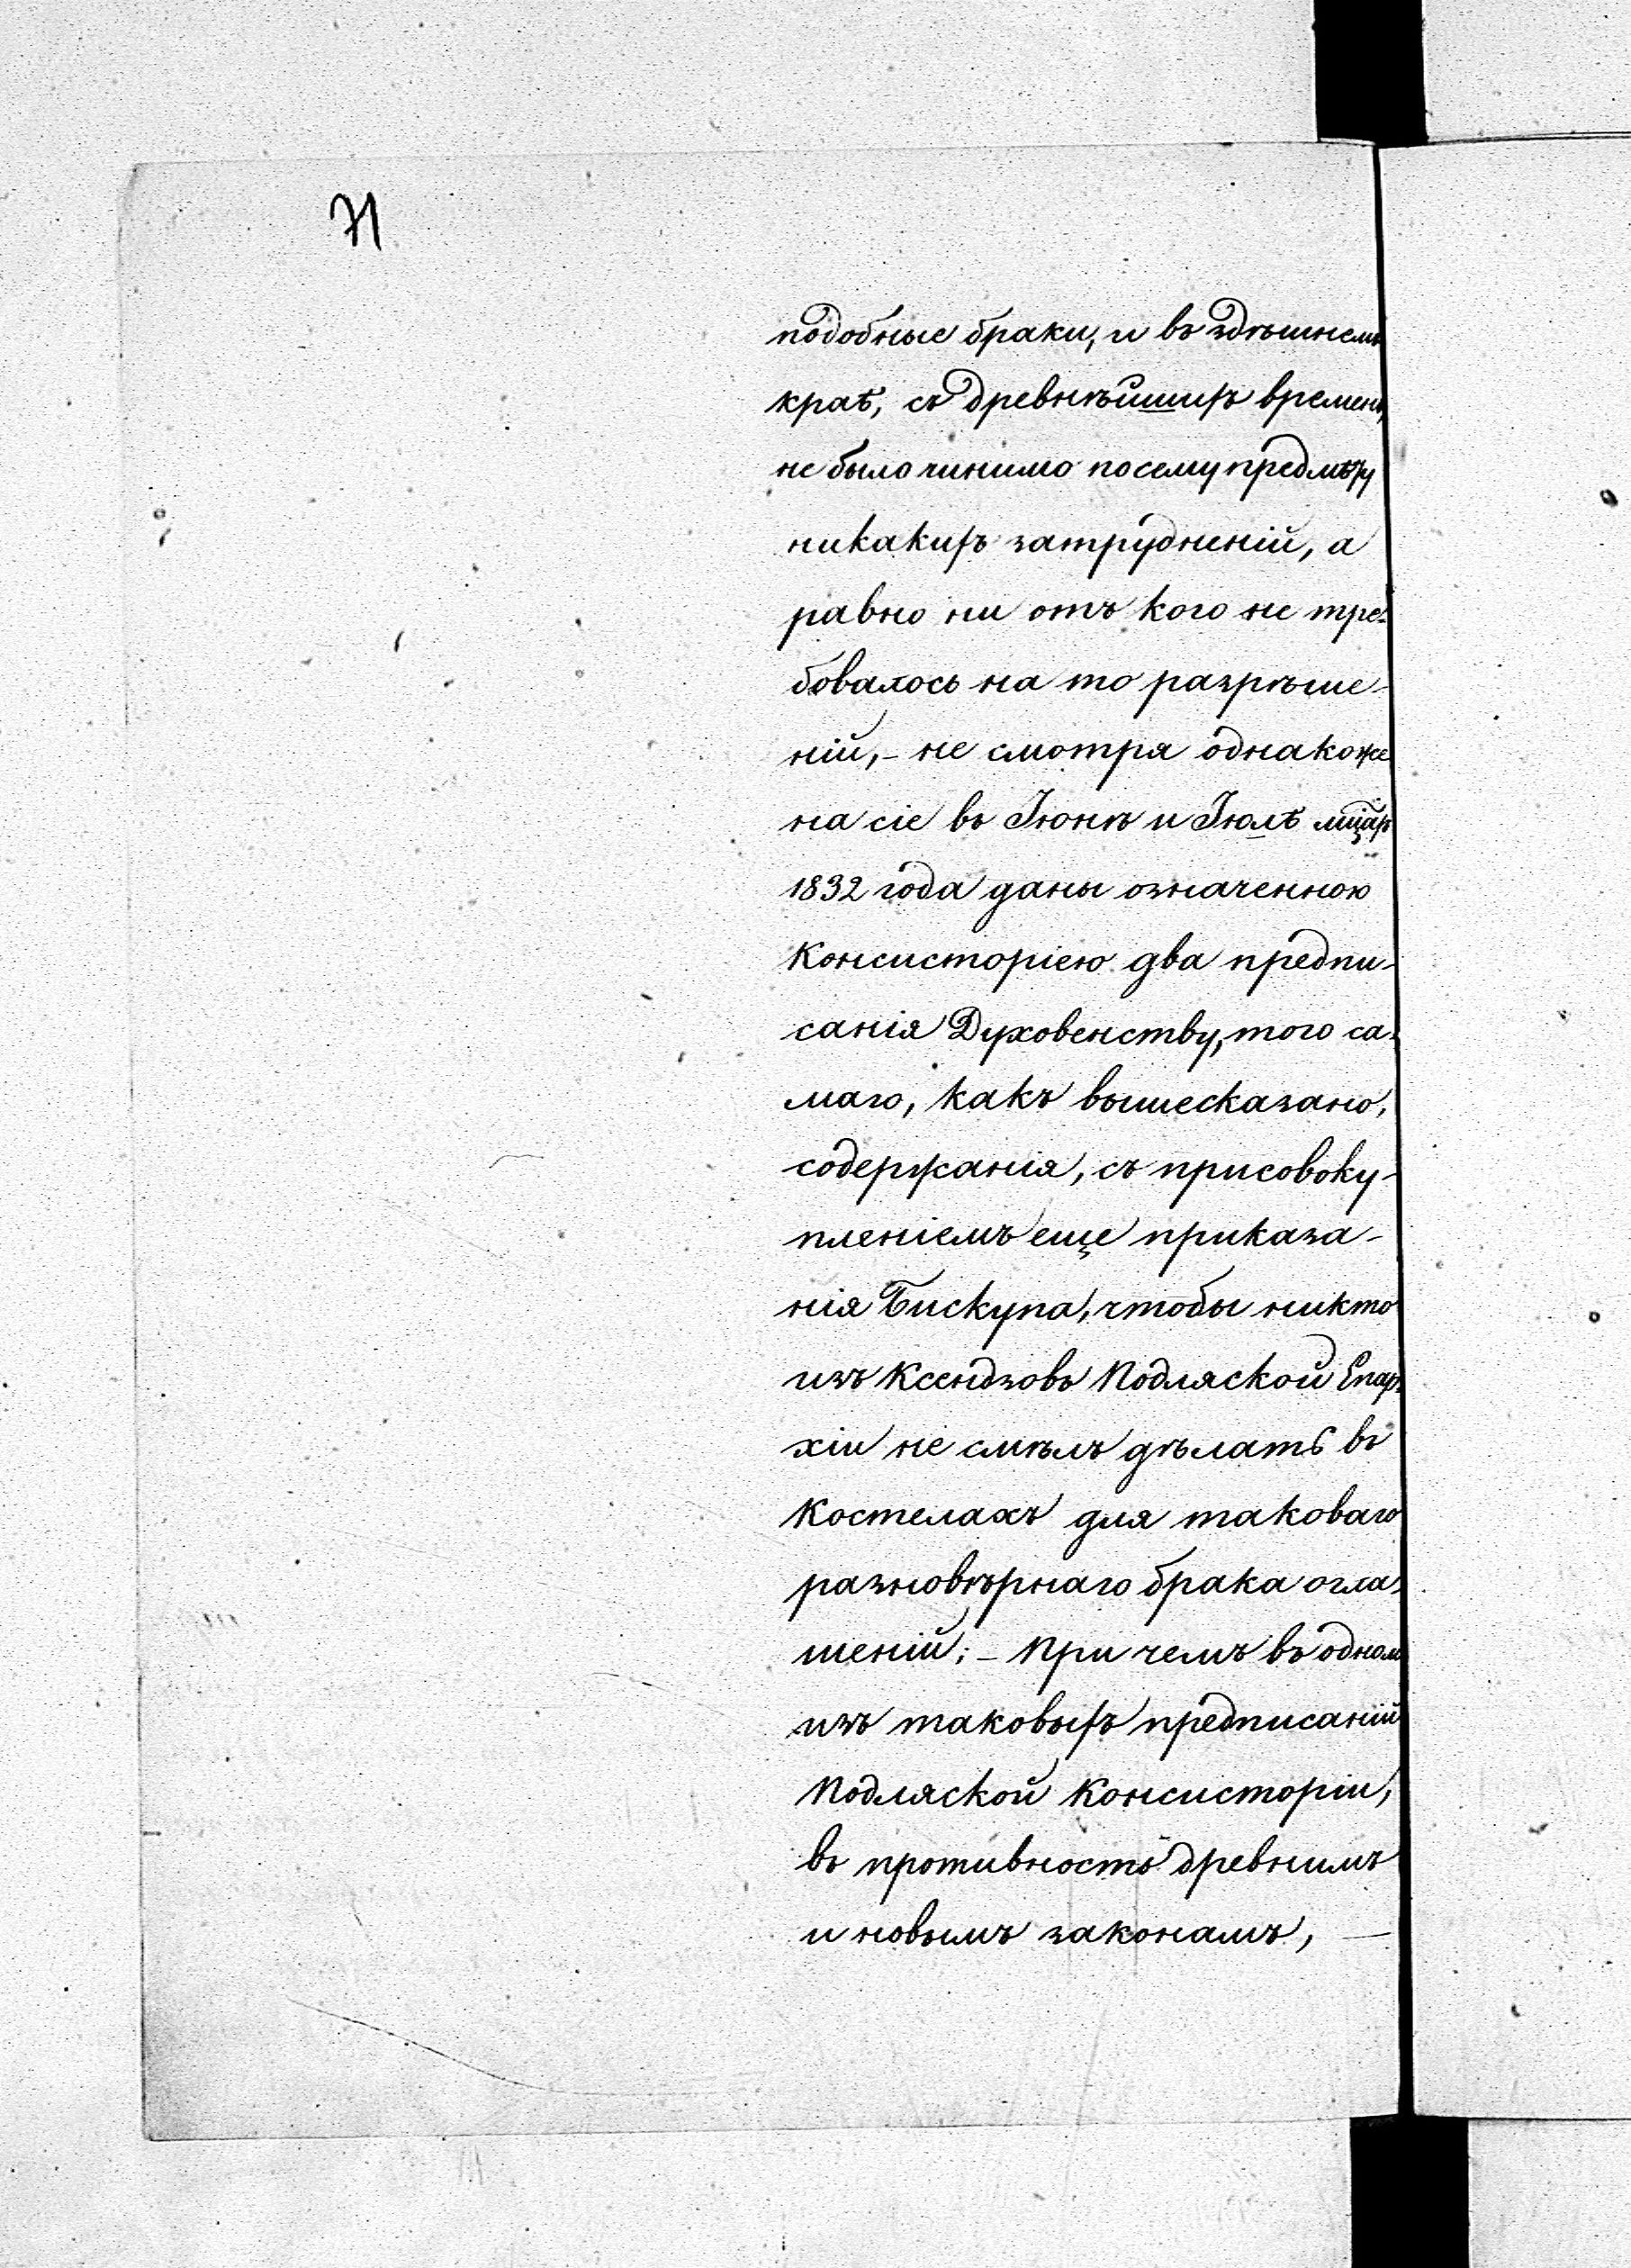 71
подобные браки, и въ здѣшнемъ
краѣ, съ древнѣйшихъ временъ,
не было чинимо по сему предмѣту
никакихъ затрудненій, а
равно ни отъ кого не тре-
бовалось на то разрѣше-
ній, - не смотря однакоже
на сіе въ Іюнѣ и Іюлѣ мцахъ
1832 года даны означенною
Консисторіею два предпи-
санія Духовенству, того са-
маго, какъ вышесказано,
содержанія, съ присовоку-
пленіемъ еще приказа-
нія Бискупа, чтобы никто
изъ Ксендзовъ Подляской Епар-
хіи не смѣлъ дѣлать въ
Костелахъ для таковаго
разновѣрнаго брака огла-
шеній; - При чемъ въ одномъ
изъ таковыхъ предписаній
Подляской Консисторіи,
въ противность древнимъ
и новымъ законамъ, —